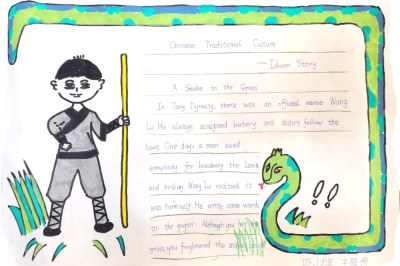 Chinese Traditional Culture
— Idiom Story
A Snake in the Grass
In Tang Dynasty, there was an official name Wang
Lu. He always accepted bribery and didn't follow the
laws. One day, a man sued
somebody for breaking the laws
and bribery. Wang Lu realized it
was himself. He wrote some words
on the paper: Although you hit the
grass, you frightened the snake
!!